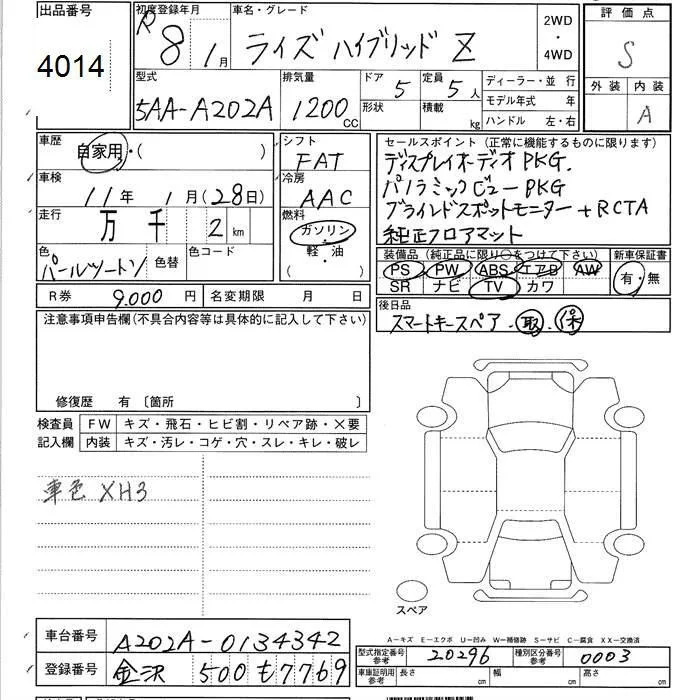 出品番号
4014
初度登録年月
R 8 年 1 月
車名・グレード
ライズ ハイブリッド Z
2WD
・
4WD
評価点
S
外装 内装
A
型式
5AA-A202A
排気量
1200 CC
ドア 5
形状
定員 5 人
積載 kg
ディーラー・並 行
モデル年式 年
ハンドル 左・右
車歴
自家用・( )
シフト
FAT
車検
11 年 1 月 (28 日)
冷房
AAC
走行
万 千 2 km
燃料
ガソリン
軽・油
( )
色
パールツートン
色替
色コード
セールスポイント (正常に機能するものに限ります)
ディスプレイオーディオPKG.
パノラミックビューPKG
ブラインドスポットモニター+RCTA
純正フロアマット
装備品 (純正品に限り○をつけて下さい)
PS PW ABS エアB AW
SR ナビ TV カワ
新車保証書
有・無
R券 9.000 円
名変期限 月 日
後日品
スマートキースペア・取・保
注意事項申告欄(不具合内容等は具体的に記入して下さい)
修復歴 有 〔箇所 〕
検査員
記入欄
FW キズ・飛石・ヒビ割・リペア跡・×要
内装 キズ・汚レ・コゲ・穴・スレ・キレ・破レ
車色 XH3
スペア
車台番号 A202A-0134342
登録番号 金沢 500 も 7769
A-キズ E-エクボ U-凹み W-補修跡 S-サビ C-腐食 XX-交換済
型式指定番号
参考
20296
種別区分番号
参考
0003
車庫証明用
参考
長さ cm 幅 cm 高さ cm